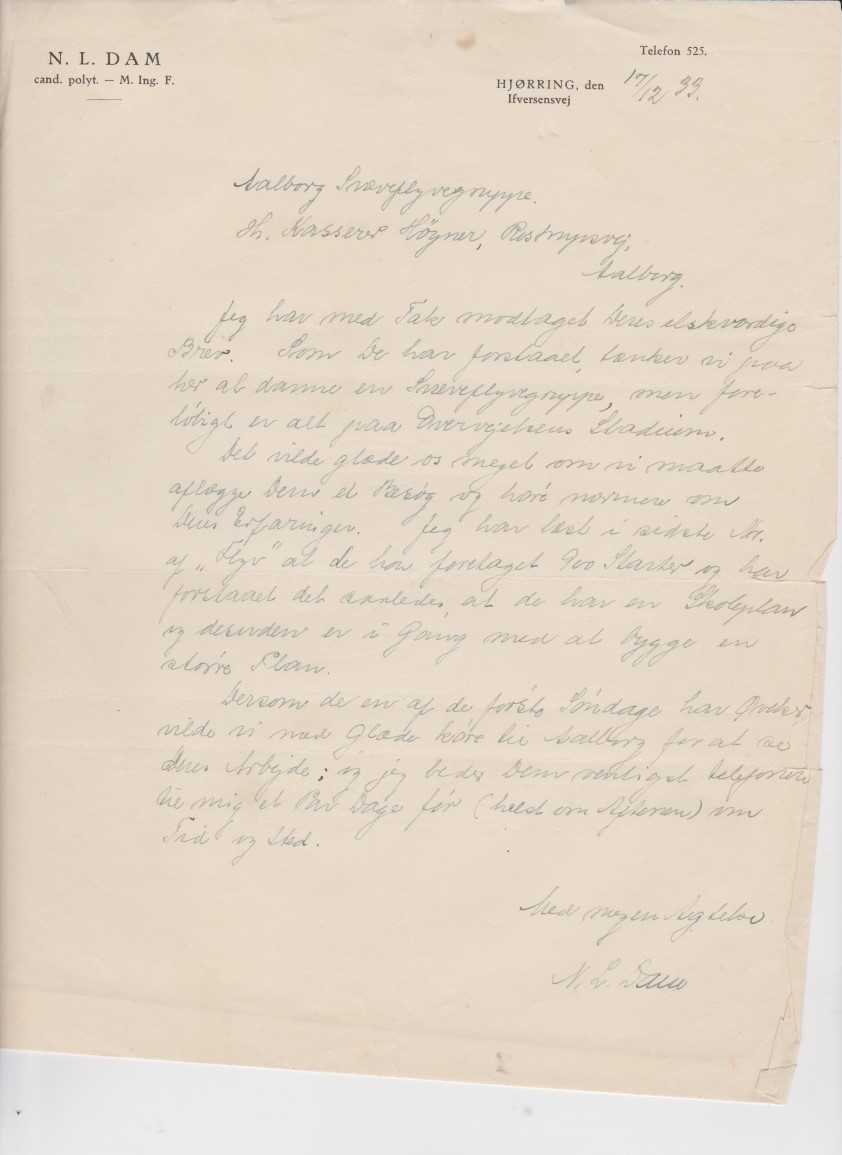 N. L. DAM
cand. polyt. — M. Ing. F.
Telefon 525.
HJØRRING, den 17/12 33.
Ifversensvej
Aalborg Svæveflyvegruppe.
Hr. Kasserer Högner, Restrupsvej,
Aalborg.
Jeg har med Tak modtaget Deres elskværdige
Brev. Som De har forstaaet, tænker vi paa
her at danne en Svæveflyvegruppe, men fore-
löbigt er alt paa Overvejelsens Stadium.
Det vilde glæde os meget om vi maatte
aflægge Dem et Besög og höre nærmere om
Deres Erfaringer. Jeg har læst i sidste Nr.
af „Flyv" at de har foretaget 900 Starter og har
forstaaet det saaledes, at de har en Skoleplan
og desuden er i Gang med at bygge en
större Plan.
Dersom de en af de förste Söndage har Øvelser,
vilde vi med Glæde köre til Aalborg for at se
Deres Arbejde; og jeg beder Dem venligst telefonere
til mig et Par Dage för (helst om Aftenen) om
Tid og Sted.
Med megen Agtelse
N. L. Dam